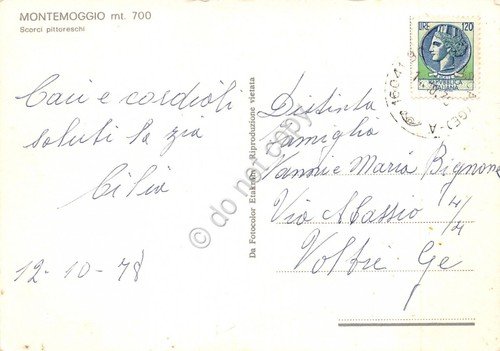 MONTEMOGGIO mt. 700
Scorci pittoreschi
Cari e cordiali
saluti la zia
Cilia
12-10-78
Da Fotocolor Riproduzione vietata
LIRE 120
REPUBBLICA
ITALIANA
Distinta
Famiglia
Vanni e Maria Bignone
Via 4/4
Voltri Ge
do not copy